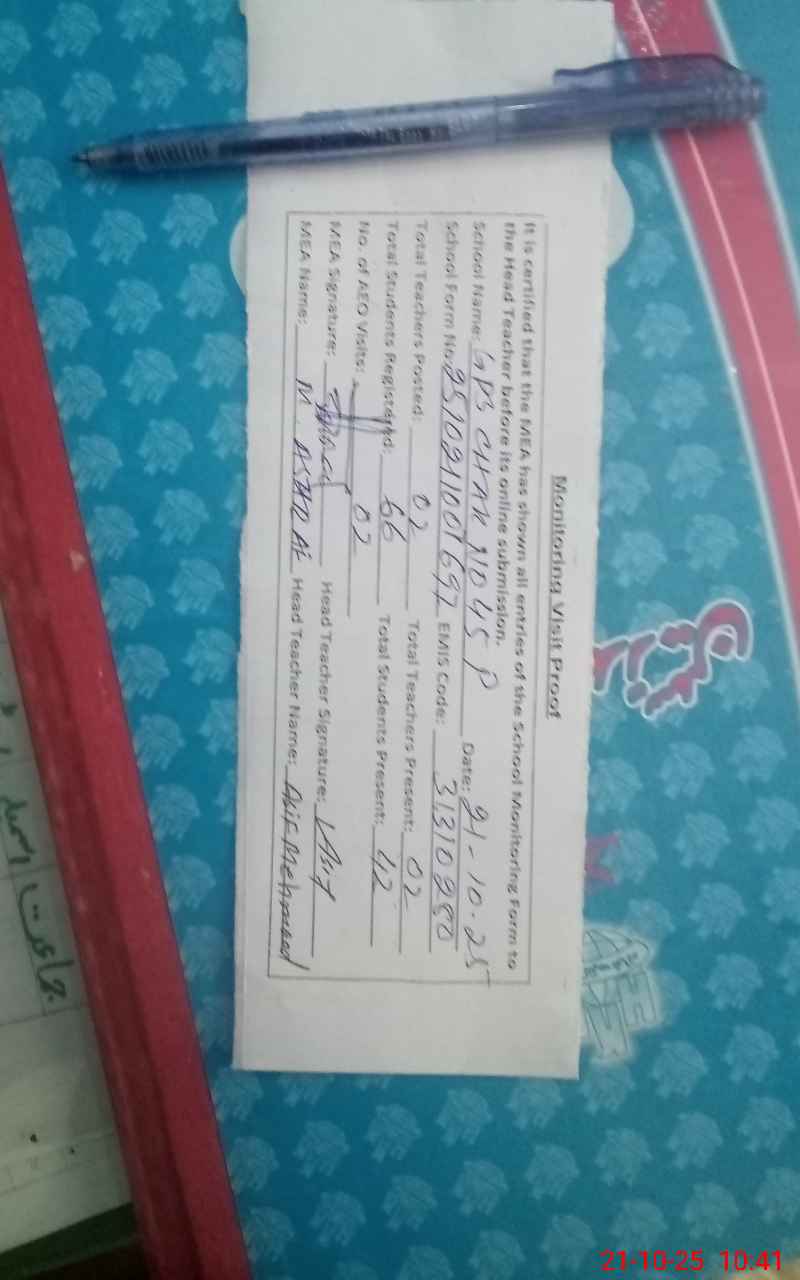 Monitoring Visit Proof
It is certified that the MEA has shown all entries of the School Monitoring Form to
the Head Teacher before its online submission.
School Name: GPS CHAK NO 45 P Date: 21-10-25
School Form No: 951021001697 EMIS Code: 31310280
Total Teachers Posted: 02 Total Teachers Present: 02
Total Students Registered: 66 Total Students Present: 42
No. of AEO Visits: 02
MEA Signature: Head Teacher Signature: Asif
MEA Name: M. ASHRAF Head Teacher Name: Asif Mehmood
21-10-25 10:41